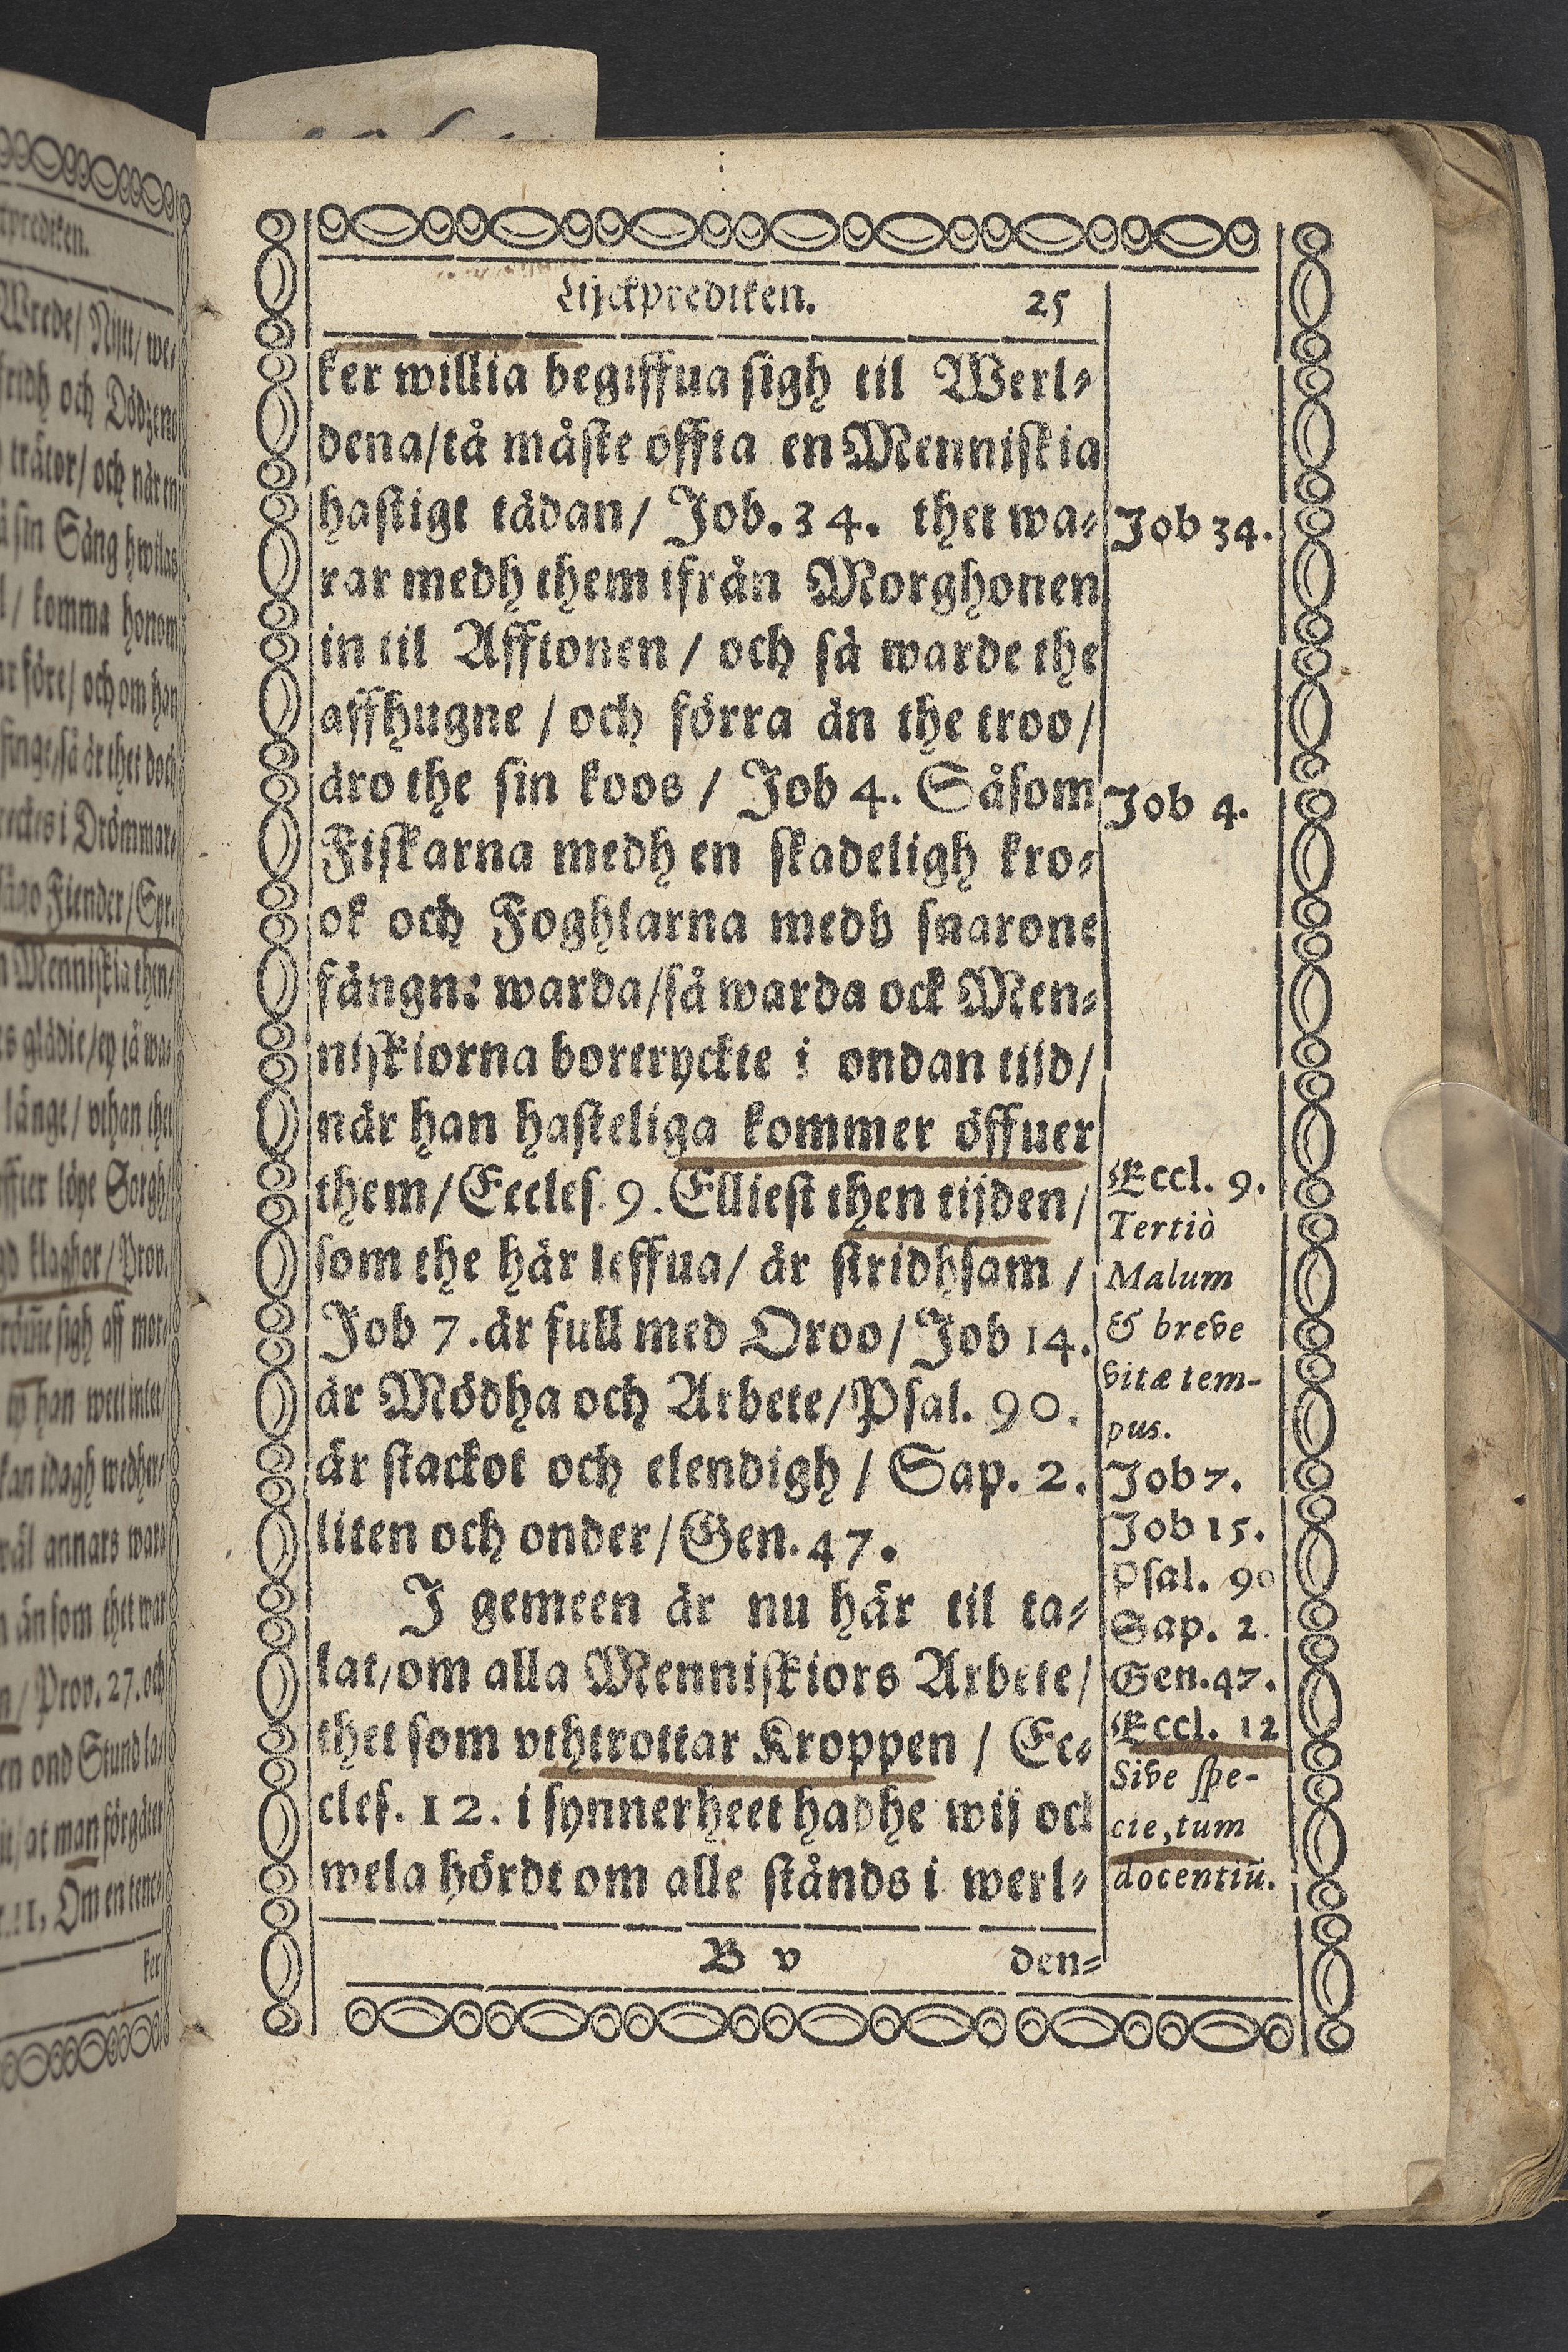 Lijckprediken. 25
ker willia begiffua sigh til Werl-
dena/tå måste offta en Menniskia
hastigt tädan/ Job. 34. thet wa-
rar medh them ifrån Morghonen
in til Afftonen / och så warde the
affhugne / och förra än the troo/
äro the sin koos / Job 4. Såsom
Fiskarna medh en skadeligh kro-
ok och Foghlarna medh snarone
fångne warda/så warda ock Men-
niskiorna bortryckte i ondan tijd/
när han hasteliga kommer öffuer
them/Eccles. 9. Elliest then tijden/
som the här leffua/ är stridhsam /
Job 7. är full med Oroo/ Job 14.
är Mödha och Arbete/Psal. 90.
är stackot och elendigh / Sap. 2.
liten och onder/Gen. 47.
J gemeen är nu här til ta-
lat/om alla Menniskiors Arbete/
thet som vthtrottar Kroppen / Ec-
cles. 12. i synnerheet hadhe wij ock
wela hördt om alle stånds i werl-
B v den-
Job 34.
Job 4.
Eccl. 9.
Tertiò
Malum
& breve
vitæ tem-
pus.
Job 7.
Job 15.
Psal. 90
Sap. 2.
Gen. 47.
Eccl. 12
Sive spe-
cie, tum
docentiū.
prediken.
Wrede/ Nijt/ we-
fridh och Dödzens
träter/ och när en
å sin Säng hwilas
l / komma honom
ar före/ och om han
finge/så är thet doch
reckes i Drömmar/
Fiender/Syr.
Menniskia then/
s glädie/ey tå wa-
länge/ vthan thet
effter löpe Sorgh/
klaghor/Prov.
sigh aff mor-
ty han weet intet/
kan idagh wedher-
wäl annars wara
än som thet war
Prov. 27. och
en ond Stund la-
at man förgäter
11, Om en tene-
ker